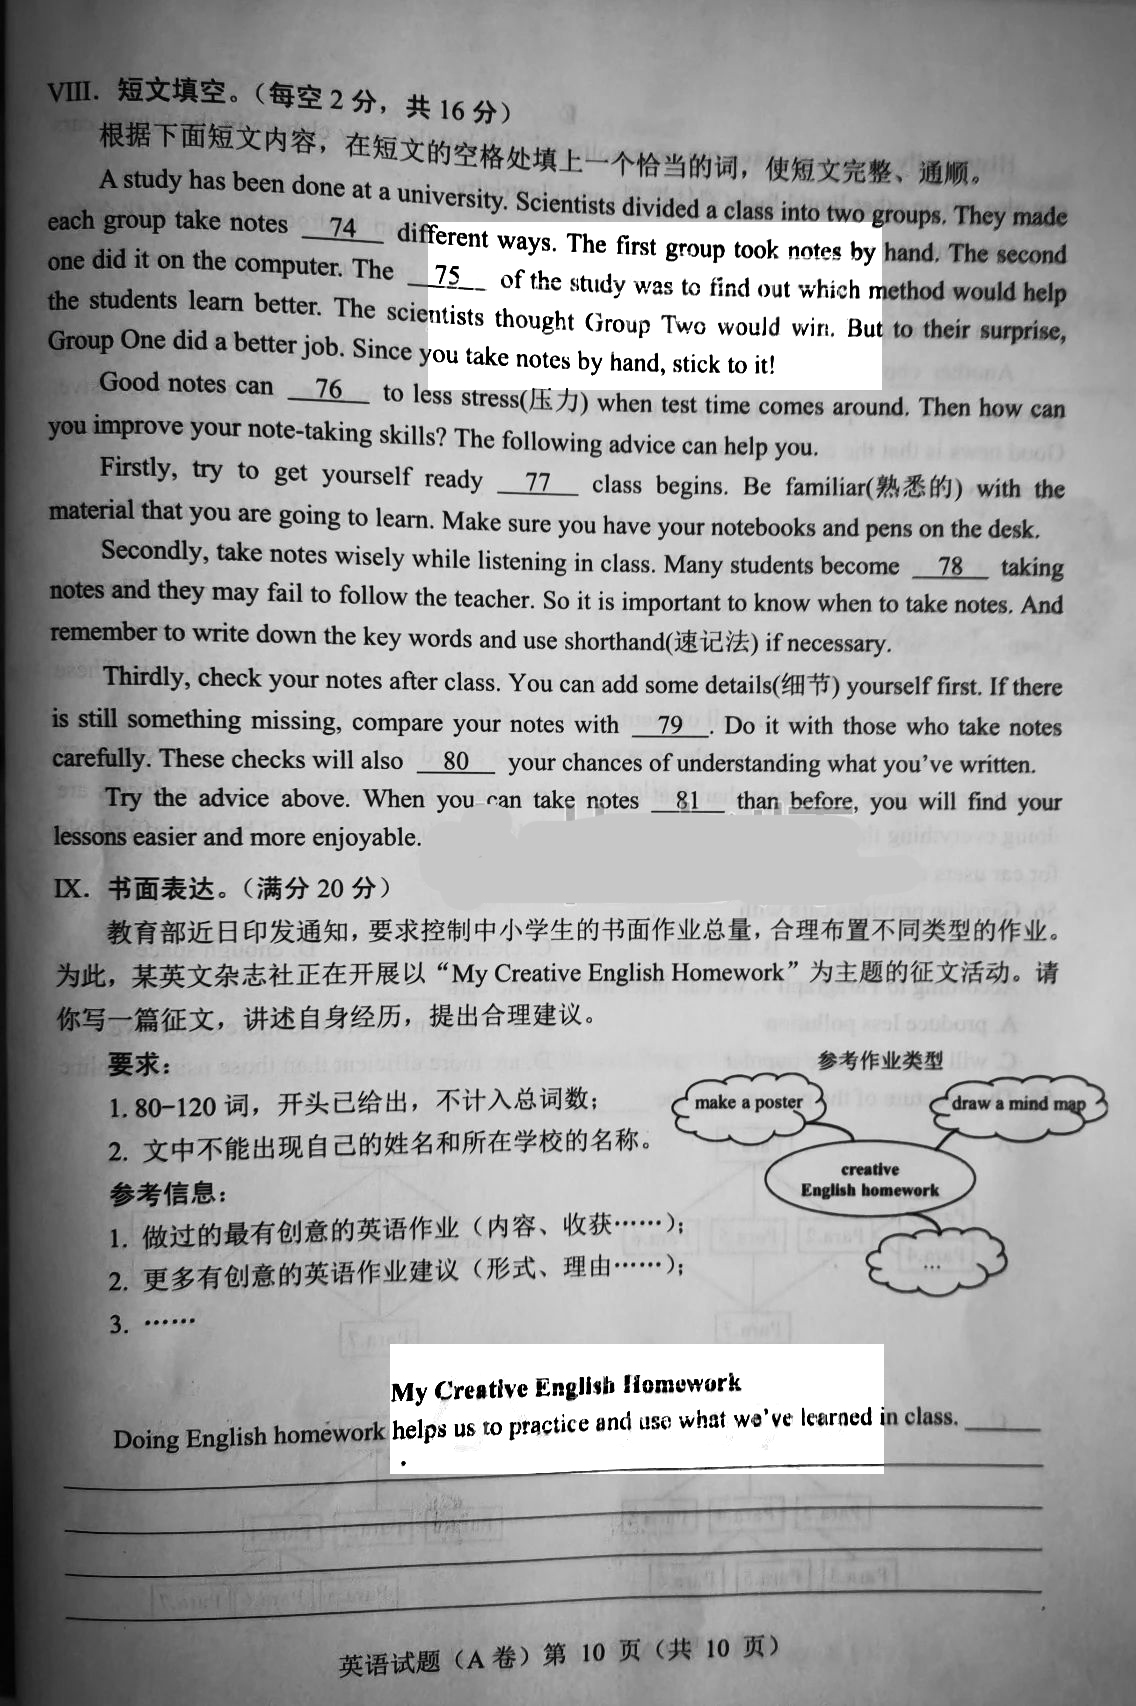 VIII. 短文填空。（每空 2 分，共 16 分）
根据下面短文内容，在短文的空格处填上一个恰当的词，使短文完整、通顺。
A study has been done at a university. Scientists divided a class into two groups. They made
each group take notes 74 different ways. The first group took notes by hand. The second
one did it on the computer. The 75 of the study was to find out which method would help
the students learn better. The scientists thought Group Two would win. But to their surprise,
Group One did a better job. Since you take notes by hand, stick to it!
Good notes can 76 to less stress(压力) when test time comes around. Then how can
you improve your note-taking skills? The following advice can help you.
Firstly, try to get yourself ready 77 class begins. Be familiar(熟悉的) with the
material that you are going to learn. Make sure you have your notebooks and pens on the desk.
Secondly, take notes wisely while listening in class. Many students become 78 taking
notes and they may fail to follow the teacher. So it is important to know when to take notes. And
remember to write down the key words and use shorthand(速记法) if necessary.
Thirdly, check your notes after class. You can add some details(细节) yourself first. If there
is still something missing, compare your notes with 79 . Do it with those who take notes
carefully. These checks will also 80 your chances of understanding what you've written.
Try the advice above. When you can take notes 81 than before, you will find your
lessons easier and more enjoyable.
IX. 书面表达。（满分 20 分）
教育部近日印发通知，要求控制中小学生的书面作业总量，合理布置不同类型的作业。
为此，某英文杂志社正在开展以“My Creative English Homework”为主题的征文活动。请
你写一篇征文，讲述自身经历，提出合理建议。
要求：
参考作业类型
1. 80-120 词，开头已给出，不计入总词数；
make a poster
draw a mind map
2. 文中不能出现自己的姓名和所在学校的名称。
creative
English homework
参考信息：
1. 做过的最有创意的英语作业（内容、收获……）；
2. 更多有创意的英语作业建议（形式、理由……）；
...
3. ……
My Creative English Homework
Doing English homework helps us to practice and use what we've learned in class.
英语试题（A 卷）第 10 页（共 10 页）